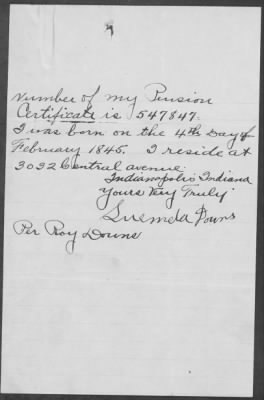 Number of my Pension
Certificate is 547847.
I was born on the 4th Day of
February 1845. I reside at
3032 Central avenue
Indianapolis Indiana
Yours Very Truly
Downs
Per Roy Downs